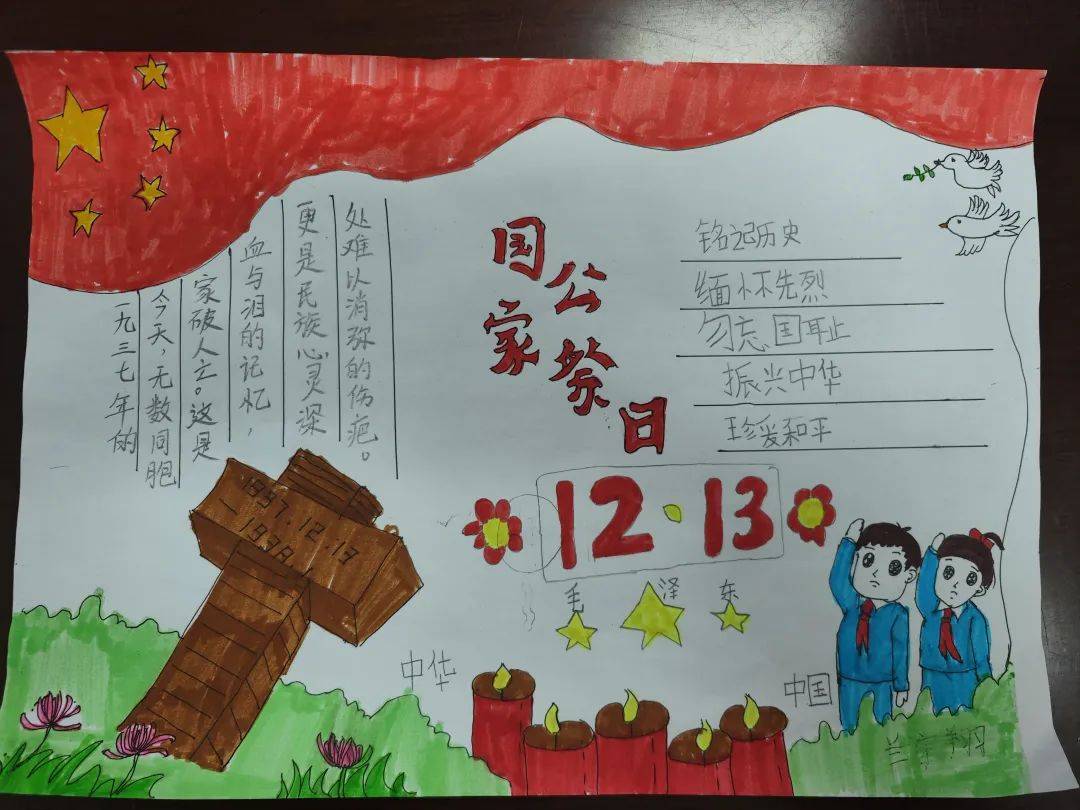 国家公祭日
12·13
一九三七年的
今天，无数同胞
家破人亡。这是
血与泪的记忆，
更是民族心灵深
处难以消弥的伤疤。
铭记历史
缅怀先烈
勿忘国耻
振兴中华
珍爱和平
1937.12.13
-1938.1
毛泽东
中华
中国